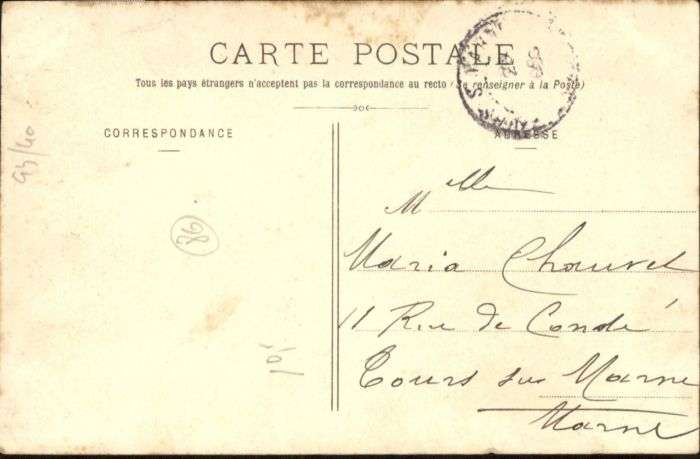 CARTE POSTALE
Tous les pays étrangers n'acceptent pas la correspondance au recto (Se renseigner à la Poste)
CORRESPONDANCE
ADRESSE
Melle
Maria Chouvet
11 Rue de Condé
Tours sur Marne
Marne
86